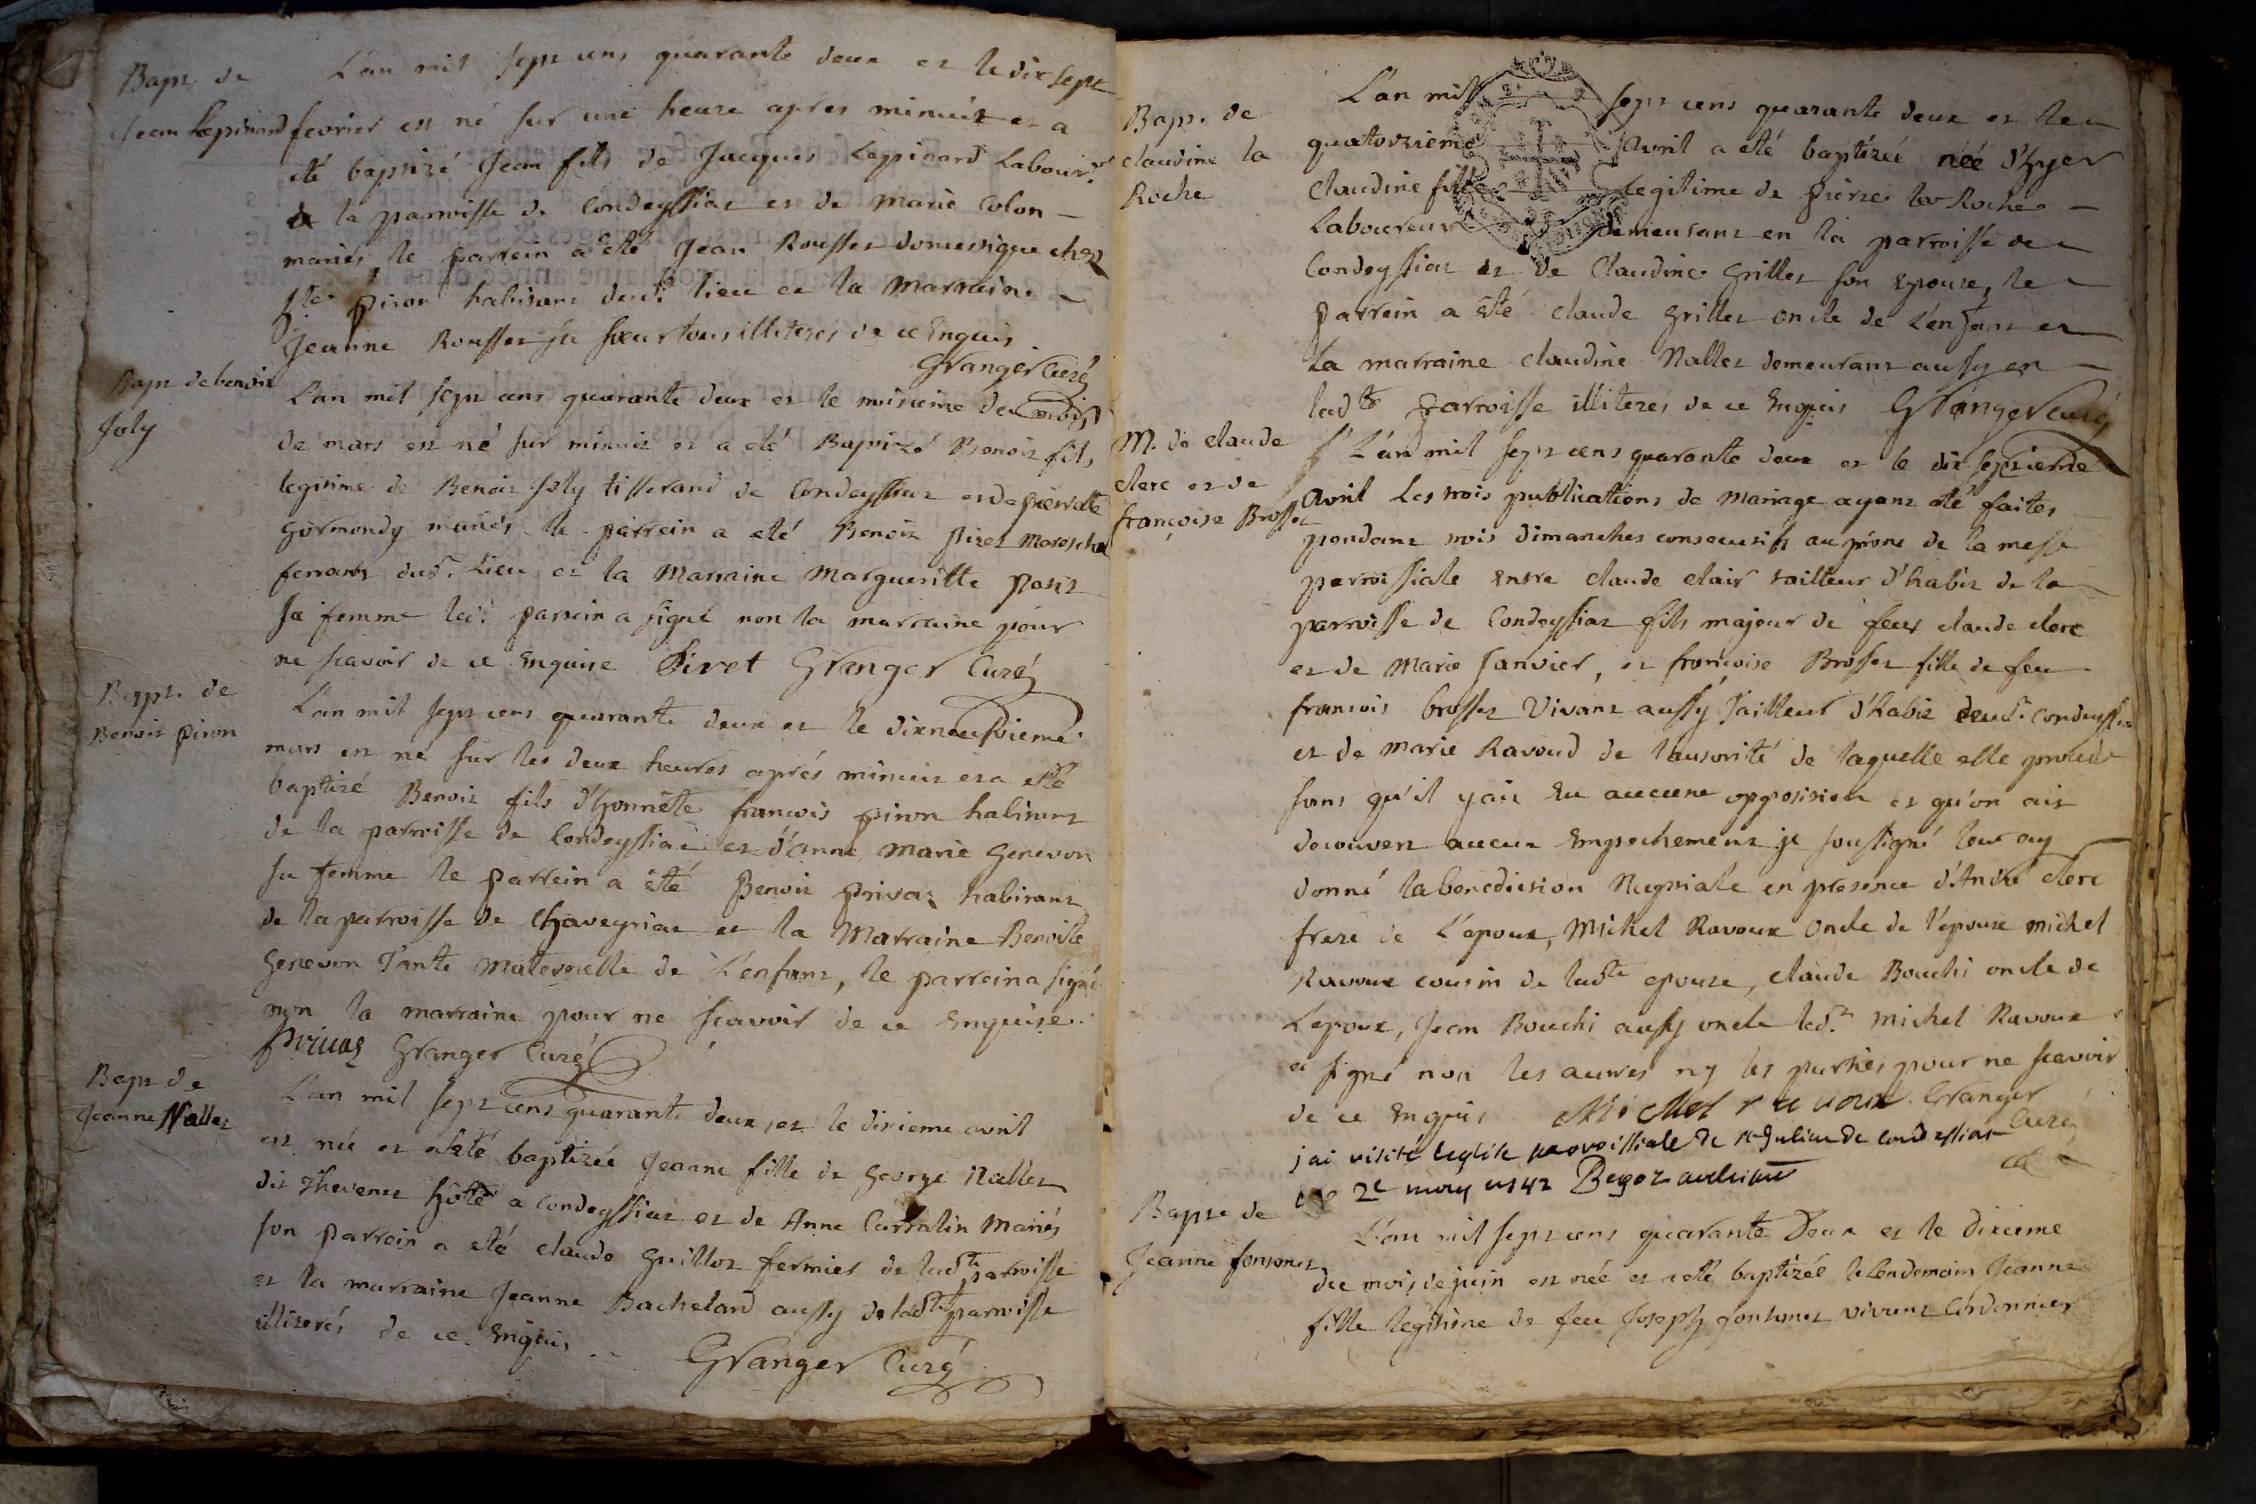 Bapt. de
Jean Lepinard
L'an mil sept cens quarante deux et le dix sept
fevrier est né sur une heure apres minuit et a
eté baptizé Jean fils de Jacques Lepinard Labour.r
de la parroisse de Condeyssiat et de Marie Colon
mariés, le parrein a eté Jean Rousset domestique chez
piron habitant dud. lieu et la Marraine
Jeanne Rousset sa soeur tous illiterés de ce Enquis
Granger Curé
Bapt de benoit
Joly
L'an mil sept cens quarante deux et le troisieme du mois
de mars est né sur minuit et a eté Baptizé Benoit fils
legitime de Benoit Joly tisserand de Condeyssiat et de pierrette
Gormondy mariés le parrein a eté Benoit Pivet Mareschal
ferrant dud. Lieu et la Marraine Margueritte
sa femme led. parrein a signé non la marraine pour
ne scavoir de ce Enquise Pivet Granger Curé
Bapt. de
Benoit piron
L'an mil sept cens quarante deux et le dixneufvieme
mars est né sur les deux heures aprés minuit et a esté
baptizé Benoit fils d'honnête francois piron habitant
de la parroisse de Condeyssiat et d'Anne Marie Genevon
sa femme le parrein a été Benoit privat habitant
de la parroisse de Chaveyriat et la Marraine Benoite
Genevon Tante Maternelle de L'enfant, le parrein a signé
non la marraine pour ne scavoir de ce Enquise.
Privas Granger Curé
Bapt de
Jeanne Nallet
L'an mil sept cens quarante deux, et le dixieme avril
est née et a été baptizée Jeanne fille de George Nallet
dit Thevenet hôte a Condeyssiat et de Anne Curtalin Mariés
son parrein a eté Claude Guillot fermier de ladte parroisse
et la marraine Jeanne Bachelard aussy de ladte parroisse
illiterés de ce Enquis
Granger Curé
Bapt. de
claudine la
Roche
L'an mil sept cens quarante deux et le
quatorzieme Avril a été baptizée née d'hyer
Claudine fille legitime de pierre la Roche
Laboureur demeurant en la parroisse de
Condeyssiat et de Claudine Grillet son Epouse, le
Parrein a été Claude Grillet oncle de L'enfant et
la marraine Claudine Nallet demeurant aussy en
ladte parroisse illiterés de ce Enquis Granger curé
M. de claude
clerc et de
françoise Brosset
L'an mil sept cens quarante deux et le dix septieme
Avril Les trois publications de Mariage ayant été faites
pendant trois dimanches consecutifs au prône de la messe
parroissiale Entre claude clair tailleur d'habit de la
parroisse de Condeyssiat fils majeur de feus claude clerc
et de Marie Janvier, et françoise Brosset fille de feu
francois brosset Vivant aussy Tailleur d'habit dud. Condeyssiat
et de Marie Ravoud de l'autorité de laquelle elle procede
sans qu'il y ait Eu aucune opposition et qu'on ait
decouvert aucun Empechement je soussigné leur ay
donné la benediction Nuptiale en presence d'André clerc
frere de L'epoux, Michel Ravoux oncle de l'epouse michel
Ravoux cousin de ladte epouse, claude Bouchi oncle de
Lepoux, Jean Bouchi aussy oncle led.t Michel Ravoux
a signé non les autres ny les parties pour ne scavoir
de ce Enquis Michel ravoux Granger
Curé
j'ai visité leglise parroissiale de st Julien de condessiat
ce 2e may 1742 Begoz
Bapte de
Jeanne fontanet
L'an mil sept cens quarante Deux et le dixieme
du mois de juin est née et a esté baptizée le lendemain Jeanne
fille legitime de feu Joseph fontanet vivant Cordonnier